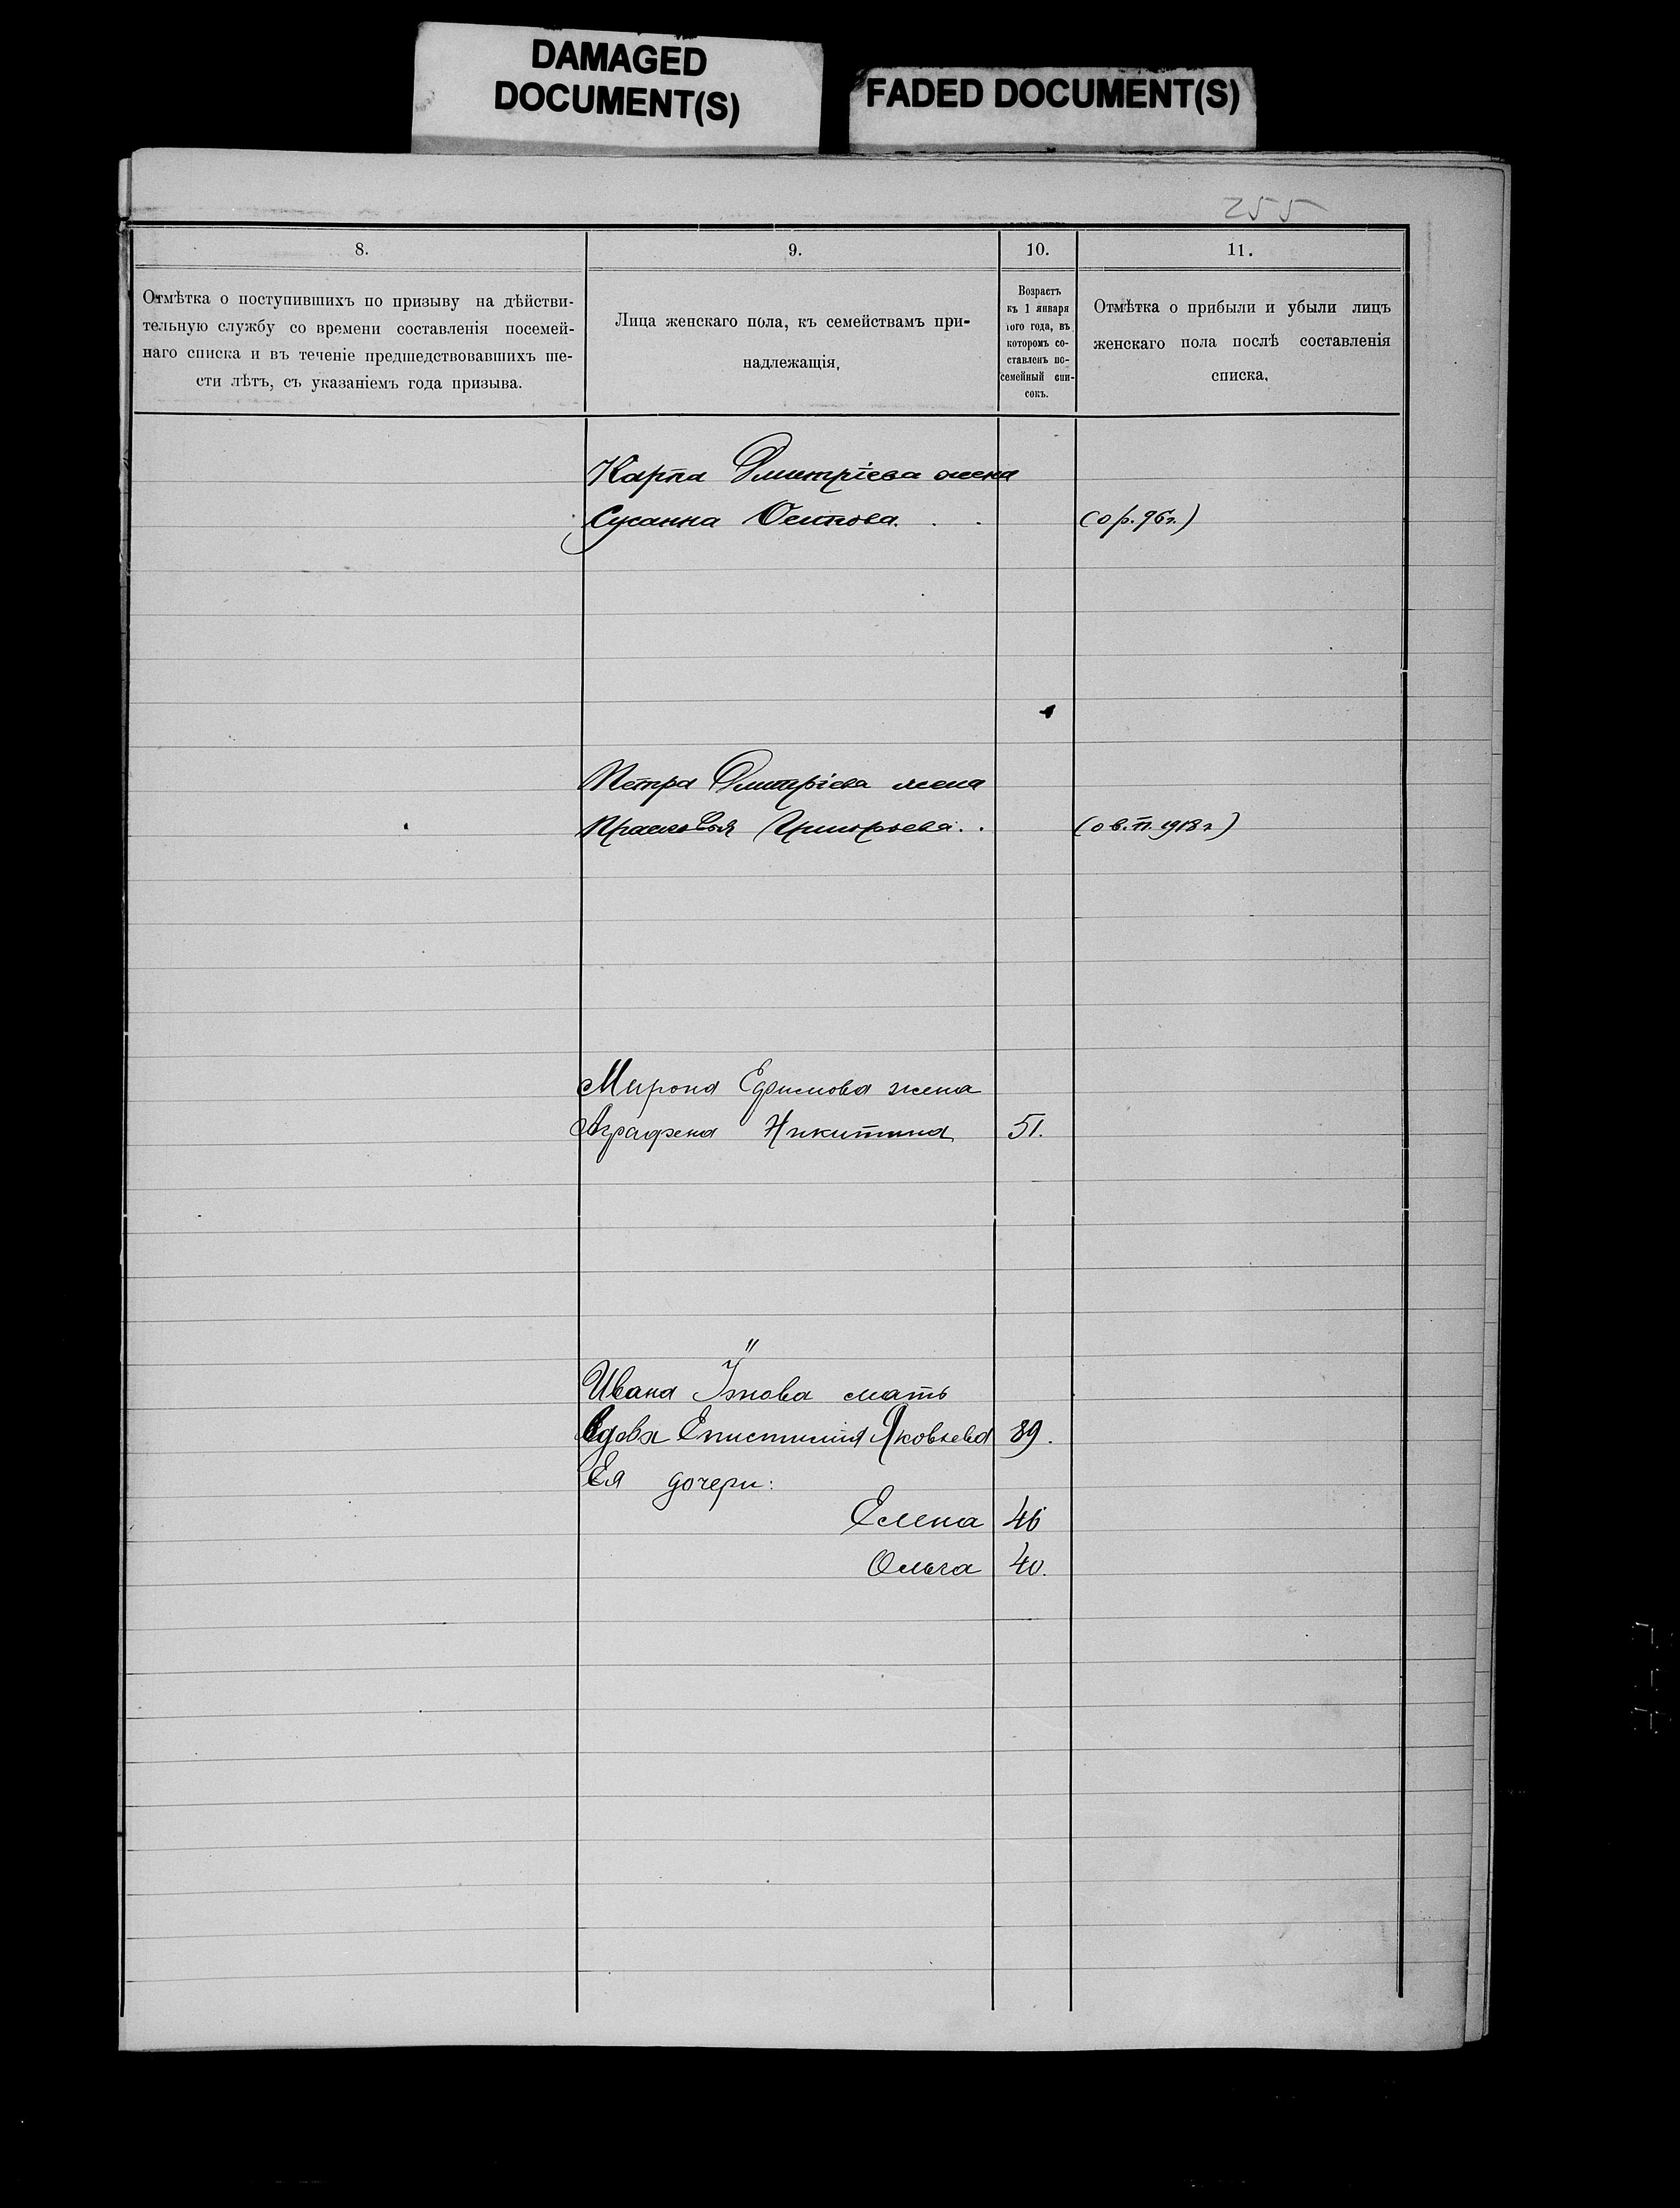 DAMAGED
DOCUMENT(S)
FADED DOCUMENT(S)
255
8.
9.
10.
11.
Отмѣтка о поступившихъ по призыву на дѣйстви-
тельную службу со времени составленія посемей-
наго списка и въ теченіе предшедствовавшихъ ше-
сти лѣтъ, съ указаніемъ года призыва.
Лица женскаго пола, къ семействамъ при-
надлежащія,
Возрастъ
къ 1 января
того года, въ
которомъ со-
ставленъ по-
семейный спи-
сокъ.
Отмѣтка о прибыли и убыли лицъ
женскаго пола послѣ составленія
списка,
Карпа Дмитріева жена
Сусанна Осипова. . . (о р. 96 г.)
Петра Дмитріева жена
Прасковья Григорьева. . (о в. п. 1918 г)
Мирона Ефимова жена
Аграфена Никитина 51.
"
Ивана мать
Вдова Епистимия Яковлева 89.
Ея дочери:
Елена 46
Ольга 40.